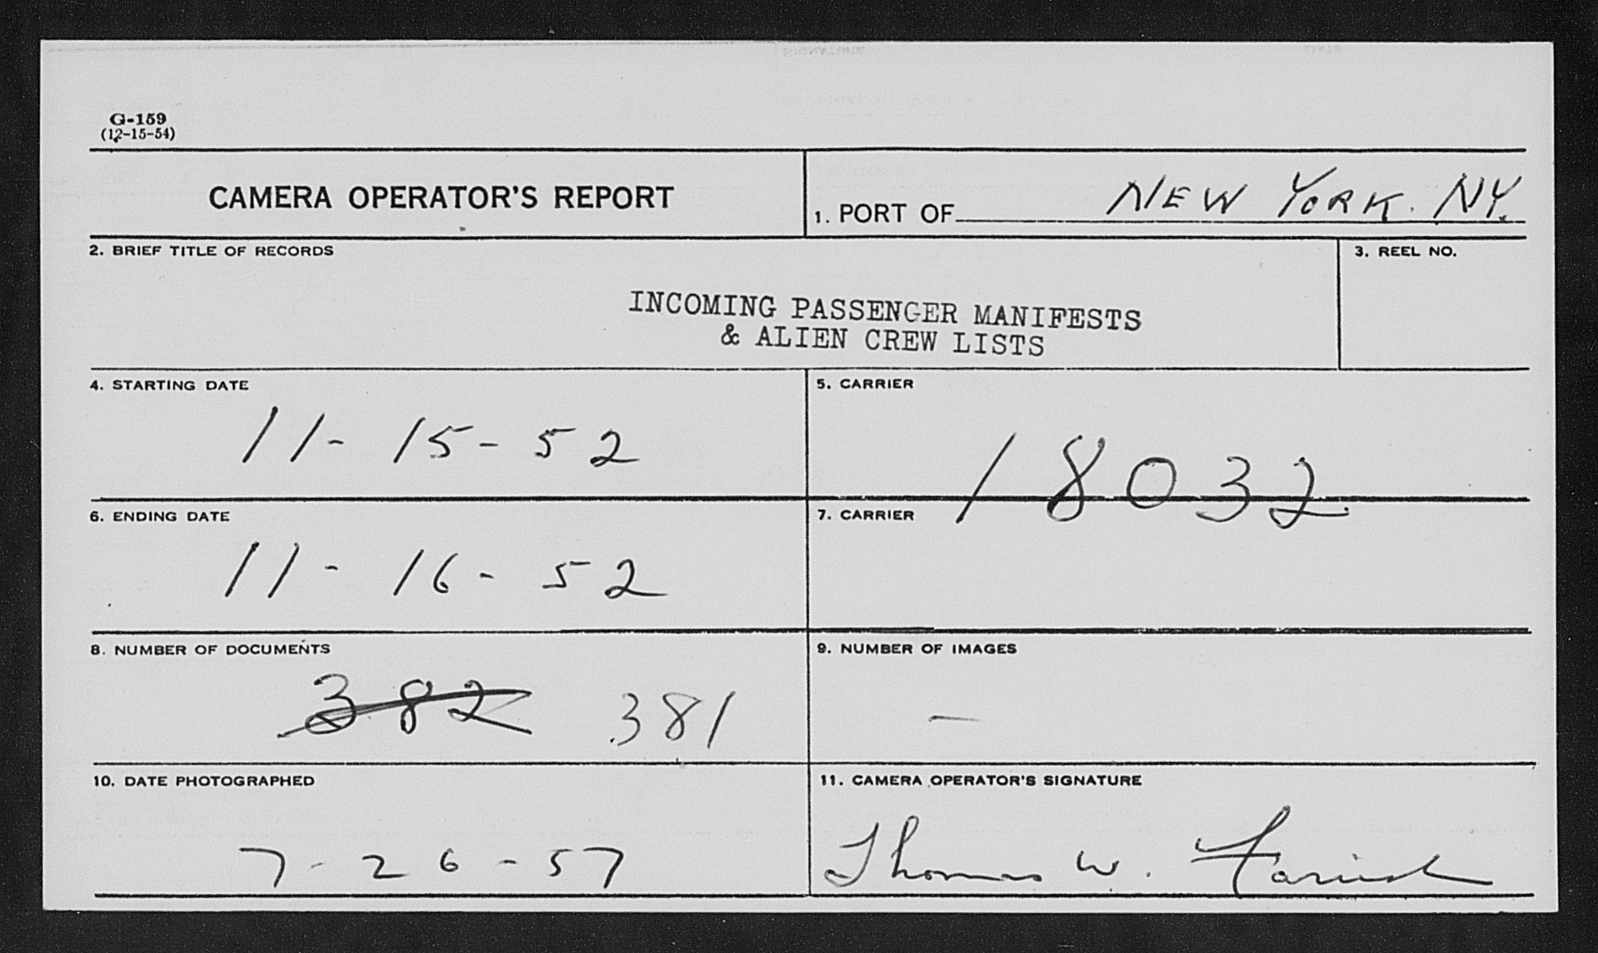 G-159
(12-15-54)
CAMERA OPERATOR'S REPORT
1. PORT OF NEW YORK. NY.
2. BRIEF TITLE OF RECORDS
3. REEL NO.
INCOMING PASSENGER MANIFESTS
& ALIEN CREW LISTS
4. STARTING DATE
5. CARRIER
11-15-52
18032
6. ENDING DATE
7. CARRIER
11-16-52
8. NUMBER OF DOCUMENTS
9. NUMBER OF IMAGES
382 381
—
10. DATE PHOTOGRAPHED
11. CAMERA OPERATOR'S SIGNATURE
7-26-57
Thomas W.